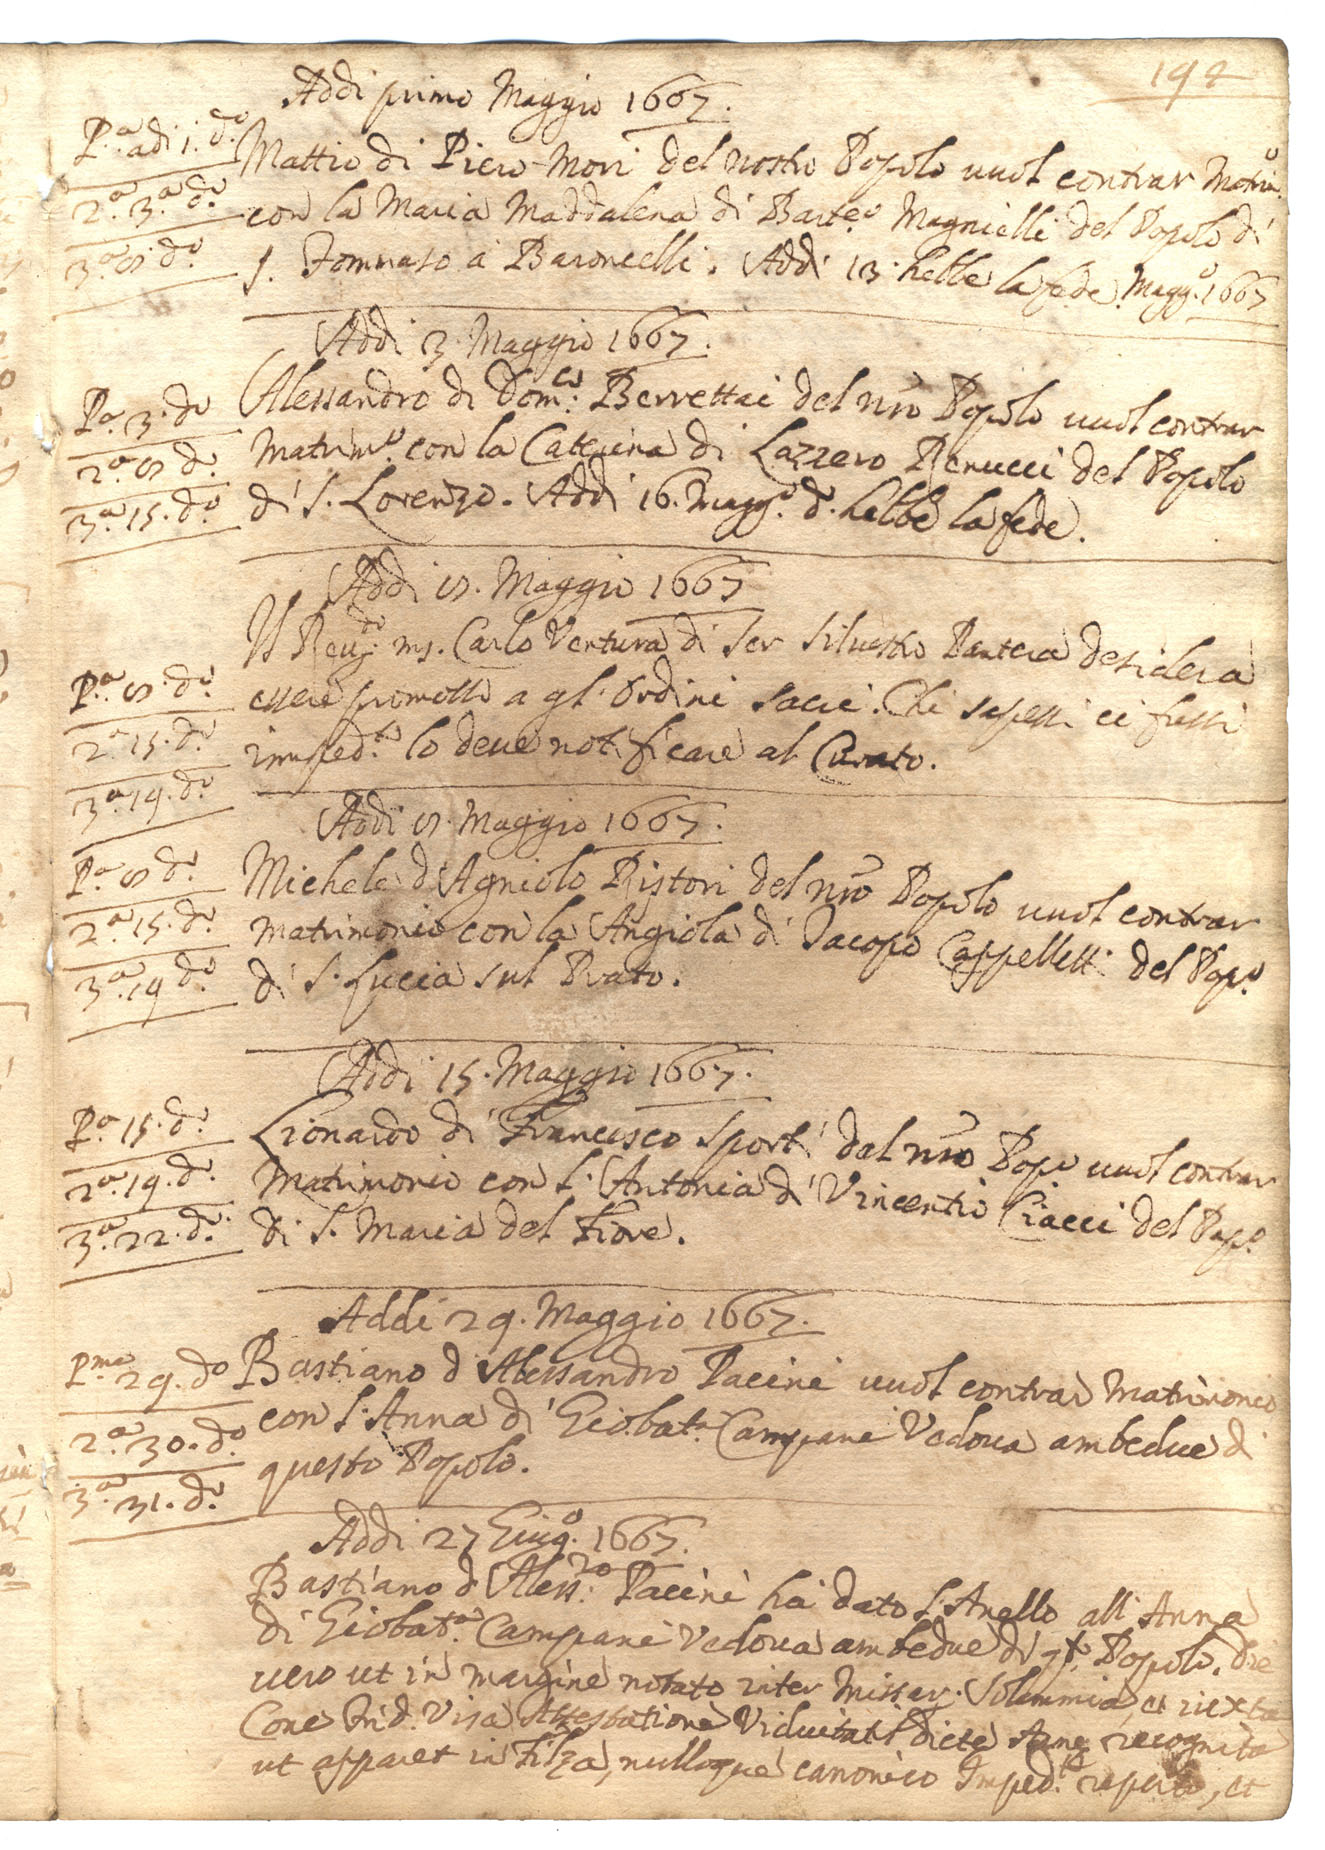 192
Addi primo Maggio 1667.
P.a adi 1. d.o
2.a 3.a d.o
3.a 8 d.o
Mattio di Piero Mori del nostro Popolo vuol contrar Matrim.o
con la Maria Maddalena di Barte.o Magnielli del Popolo di
S. Tommaso a Baroncelli. Addi 13 hebbe la fede Magg.o 1667
Addi 3. Maggio 1667.
P.a 3. d.o
2.a 8 d.o
3.a 15. d.o
Alessandro di Dom.co Berrettai del nro Popolo vuol contrar
Matrim.o con la Caterina di Lazzero Renucci del Popolo
di S. Lorenzo. Addi 16. Magg.o d.o hebbe la fede.
Addi 8. Maggio 1667
P.a 8. d.o
2.a 15. d.o
3.a 19. d.o
Il Reu.do ms. Carlo Ventura di Ser Siluestro Pantera desidera
essere promosso a gl' Ordini Sacri. Chi sapessi ci fussi
imped.to lo deue notificare al Curato.
Addi 8. Maggio 1667.
P.a 8 d.o
2.a 15. d.o
3.a 19 d.o
Michele d'Agniolo Ristori del nro Popolo vuol contrar
Matrimonio con la Angiola di Jacopo Cappelletti del Pop.o
di S. Lucia sul Prato.
Addi 15. Maggio 1667.
P.a 15. d.o
2.a 19. d.o
3.a 22. d.o
Lionardo di Francesco Sporti dal nro Pop.o vuol contrar
Matrimonio con l'Antonia di Vincentio Ciacci del Pop.o
di S. Maria del Fiore.
Addi 29. Maggio 1667.
P.ma 29. d.o
2.a 30. d.o
3.a 31. d.o
Bastiano d'Alessandro Pacini vuol contrar Matrimonio
con l'Anna di Giobat.a Campani Vedoua ambedue di
questo Popolo.
Addi 27 Giug.o 1667.
Bastiano d'Aless.ro Pacini ha dato l'Anello all'Anna
di Giobat.a Campani Vedoua ambedue di q.to Popolo. Die
uero ut in margine notato inter Missar. Solemnia, et iuxta
Conc. Trid. Visa Attestatione Viduitatis dicte Anne recognita
ut apparet in Filza, nulloque canonico Imped.to reperto, et